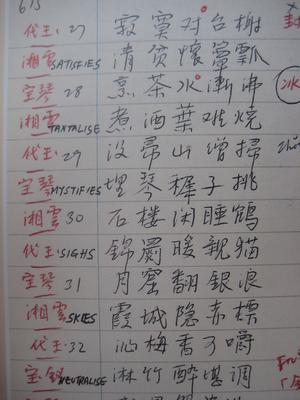 615
代玉 27 寂寞对台榭
湘雲 SATISFIES 清貧懷簞瓢
宝琴 28 烹茶水漸沸
湘雲 TANTALISE 煮酒葉难燒
代玉 29 没帚山僧掃
宝琴 MYSTIFIES 埋琴稺子挑
湘雲 30 石楼闲睡鶴
代玉 SIGHS 錦罽暖親猫
宝琴 31 月窟翻銀浪
湘雲 SKIES 霞城隐赤標
代玉 32 沁梅香可嚼
宝钗 NEUTRALISE 淋竹醉堪调